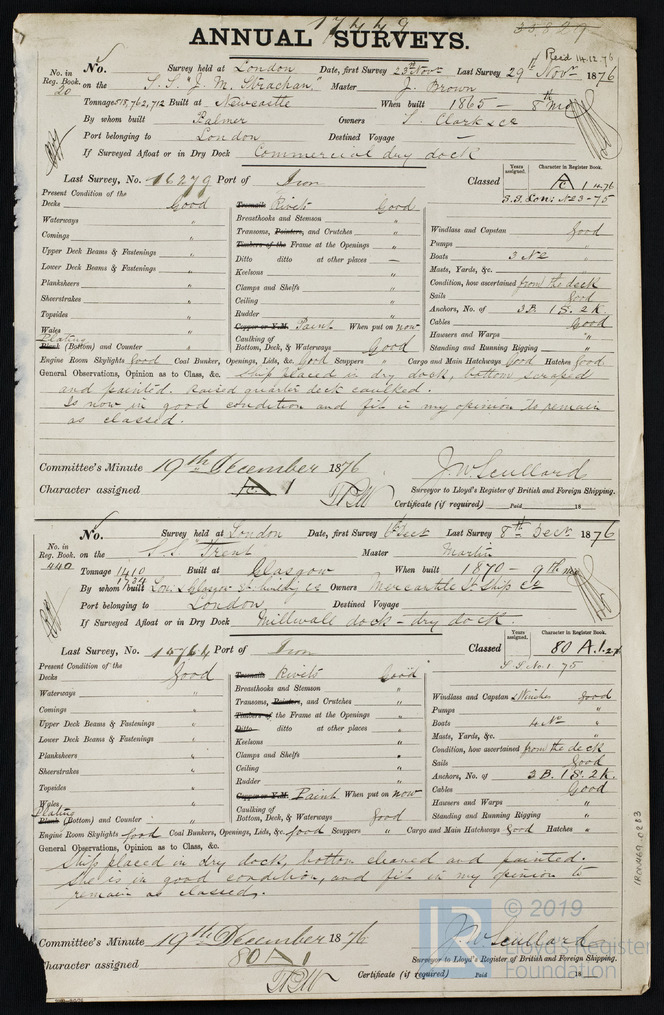 17449
33827
ANNUAL SURVEYS.
Recd 14.12.76
No. in Reg. Book. 20
No. Survey held at London Date, first Survey 23rd Novr Last Survey 29th Novr 1876
on the S.S. "J. M. Strachan" Master J. Brown
Tonnage 518,762,712 Built at Newcastle When built 1865 - 8th mo
By whom built Palmer Owners T. Clark & Co
Port belonging to London Destined Voyage —
If Surveyed Afloat or in Dry Dock Commercial dry dock
Last Survey, No. 16279 Port of Iron Classed
Years assigned. Character in Register Book.
A 1 11.76
S.S. Lon: No 3-75
Present Condition of the
Decks Good
Waterways "
Comings "
Upper Deck Beams & Fastenings "
Lower Deck Beams & Fastenings "
Planksheers "
Sheerstrakes "
Topsides "
Wales "
Plating
Plank (Bottom) and Counter "
Treenails Rivets Good
Breasthooks and Stemson "
Transoms, Pointers, and Crutches "
Timbers of the Frame at the Openings "
Ditto ditto at other places —
Keelsons "
Clamps and Shelfs "
Ceiling "
Rudder "
Copper or Y.M. Paint When put on now
Caulking of Bottom, Deck, & Waterways Good
Windlass and Capstan Good
Pumps "
Boats 3 No "
Masts, Yards, &c. "
Condition, how ascertained from the deck
Sails Good
Anchors, No. of 3 B. 1 S. 2 K.
Cables Good
Hawsers and Warps "
Standing and Running Rigging "
Engine Room Skylights Good Coal Bunkers, Openings, Lids, &c. Good Scuppers " Cargo and Main Hatchways Good Hatches Good
General Observations, Opinion as to Class, &c. Ship placed in dry dock, bottom scraped
and painted. Raised quarter deck caulked.
Is now in good condition and fit in my opinion to remain
as classed.
Committee's Minute 19th December 1876
Character assigned A 1
J. W. Scullard
Surveyor to Lloyd's Register of British and Foreign Shipping.
Certificate (if required) Paid 18
No. in Reg. Book. 440
No. Survey held at London Date, first Survey 6 Dect Last Survey 8th Decr 1876
on the S.S. "Trent" Master Martin
Tonnage 1410 1734 Built at Glasgow When built 1870 - 9th mo
By whom built Lon. & Glasgow St. building Co Owners Mercantle St. Ship Co
Port belonging to London Destined Voyage
If Surveyed Afloat or in Dry Dock Millwall dock - dry dock.
Last Survey, No. 15764 Port of Iron Classed
Years assigned. Character in Register Book.
80 A.1.
S.S. No. 1 75
Present Condition of the
Decks Good
Waterways "
Comings "
Upper Deck Beams & Fastenings "
Lower Deck Beams & Fastenings "
Planksheers "
Sheerstrakes "
Topsides "
Wales "
Plating
Plank (Bottom) and Counter "
Treenails Rivets Good
Breasthooks and Stemson "
Transoms, Pointers, and Crutches "
Timbers of the Frame at the Openings "
Ditto ditto at other places "
Keelsons "
Clamps and Shelfs "
Ceiling "
Rudder "
Copper or Y.M. Paint When put on now
Caulking of Bottom, Deck, & Waterways Good
Windlass and Capstan & Winches Good
Pumps "
Boats 4 No "
Masts, Yards, &c. "
Condition, how ascertained from the deck
Sails Good
Anchors, No. of 3 B. 1 S. 2 K.
Cables Good
Hawsers and Warps "
Standing and Running Rigging "
Engine Room Skylights Good Coal Bunkers, Openings, Lids, &c. Good Scuppers " Cargo and Main Hatchways Good Hatches "
General Observations, Opinion as to Class, &c.
Ship placed in dry dock, bottom cleaned and painted.
She is in good condition, and fit in my opinion to
remain as classed.
Committee's Minute 19th December 1876
Character assigned 80 A 1
J. W. Scullard
Surveyor to Lloyd's Register of British and Foreign Shipping.
Certificate (if required) Paid 18
IRON469-0283
LR
© 2019
Lloyd's Register
Foundation